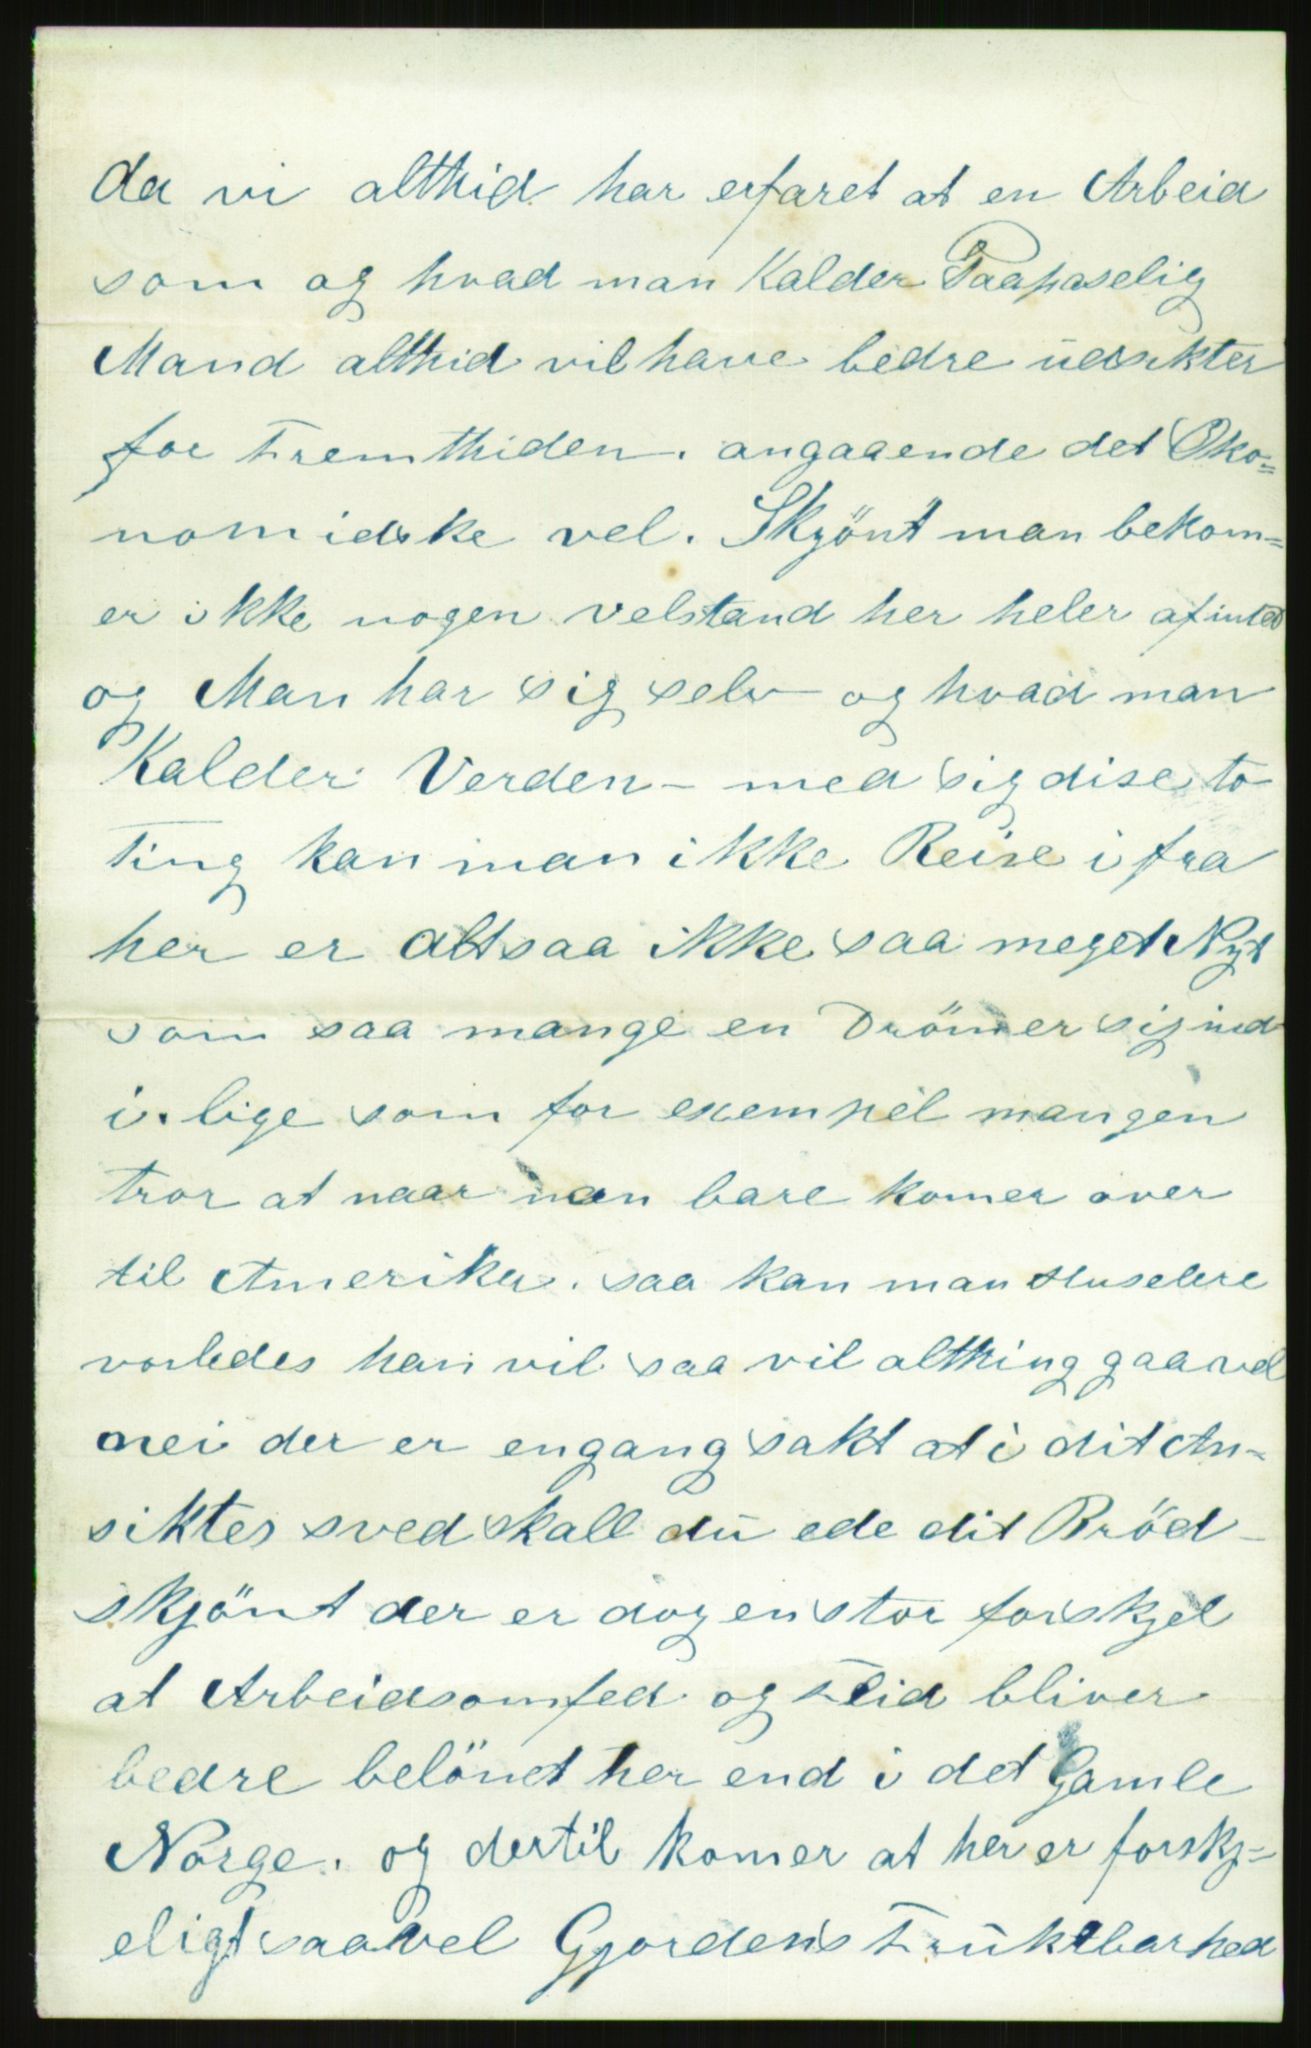 da vi althid har erfaret at en Arbeid
som og hvad man Kalder Paapaselig
Mand althid vil have bedre udsikter
for Fremthiden. angaaende det Öko=
nomidske vel. Skjönt man bekom=
er ikke nogen velstand her heler af inted
og Man har sig selv og hvad man
Kalder Verden - med sig dise to
Ting kan man ikke Reise i fra
her er altsaa ikke saa meget Nyt
som saa mange en Drömer sig ind
i. lige som for exempel mangen
tror at naar man bare komer over
til Amerika. saa kan man Huselere
vorledes han vil saa vil althing gaa vel
nei der er engang sakt at i dit An=
siktes sved skall du ede dit Bröd -
skjönt der er dog en stor forskjel
at Arbeidsomfed og Flid bliver
bedre belönet her end i det Gamle
Norge. og dertil komer at her er forskj=
eligt saavel Gjordens Fruktbarhed